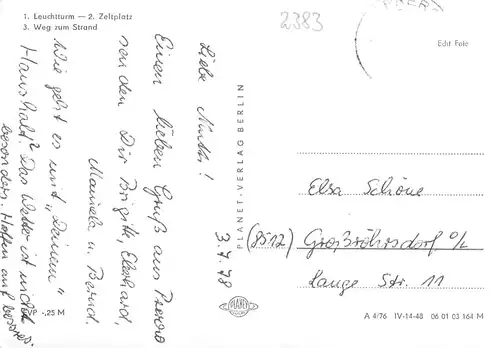 1. Leuchtturm — 2. Zeltplatz
3. Weg zum Strand
2383
Edit Foie
3.7.78
Liebe Mutti!
Einen lieben Gruß aus Prerow
senden Dir Brigitte, Eberhard,
Manuela u. Bernd.
Wie geht es mit "Deinem"
Haushalt? Das Wetter ist nicht
besonders. Hoffen auf besseres.
EVP -,25 M
PLANET-VERLAG BERLIN
PLANET
Elsa Schöne
(8512) Großröhrsdorf O/L
Lange Str. 11
A 4/76 IV-14-48 06 01 03 164 M